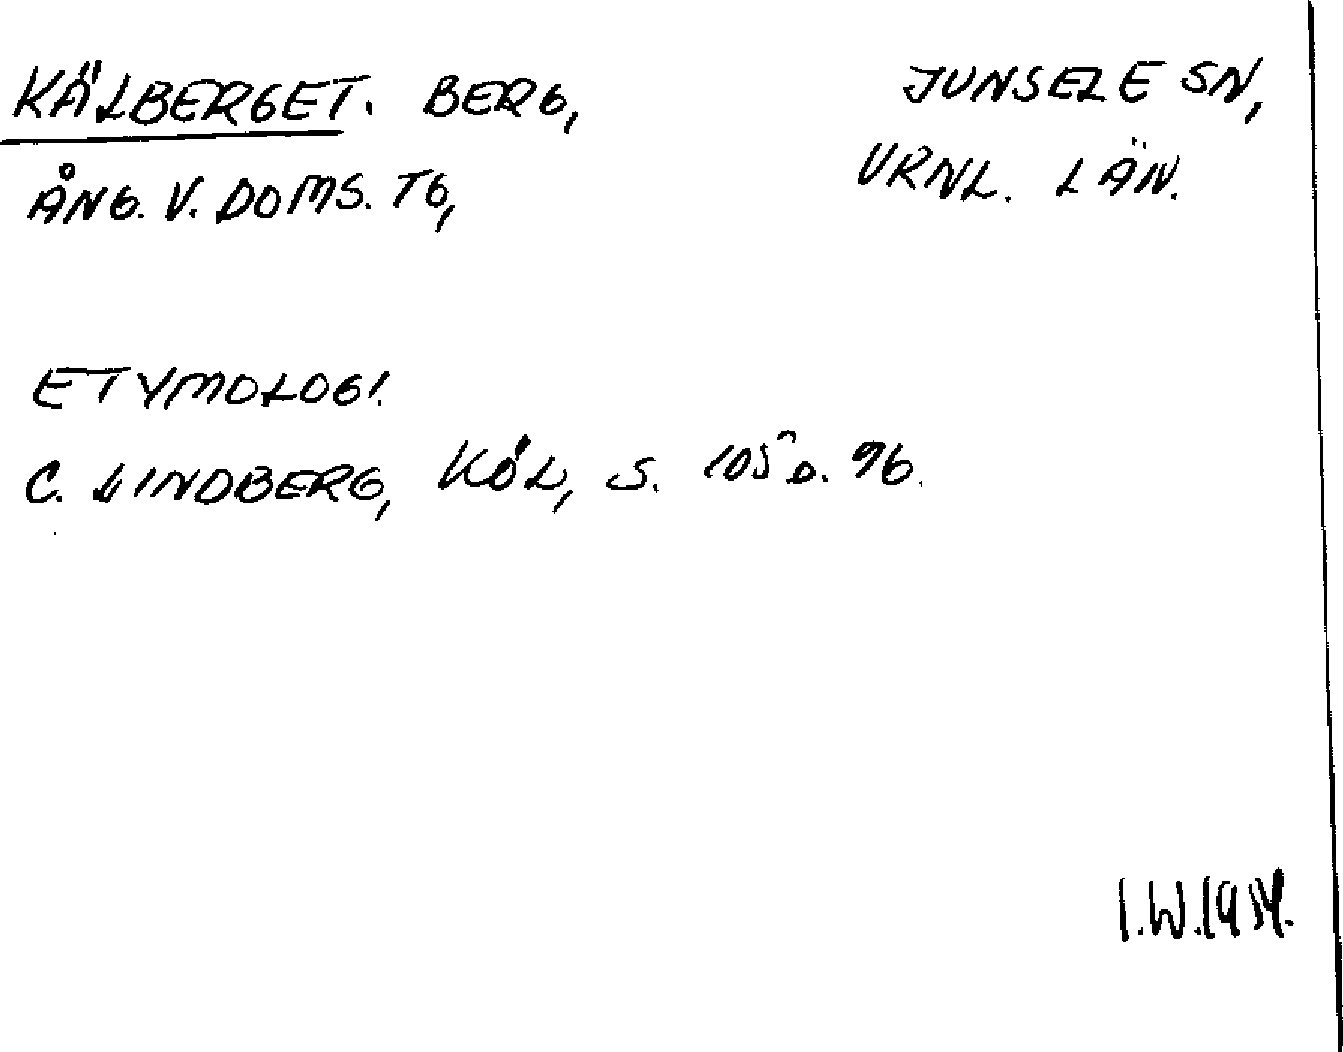 KÄLBERGET. BERG,
JUNSELE SN,
ÅNG. V. DOMS. TG,
VRNL. LÄN.
ETYMOLOGI.
C. LINDBERG, KÖL, S. 105 O. 96.
I.W.1954.